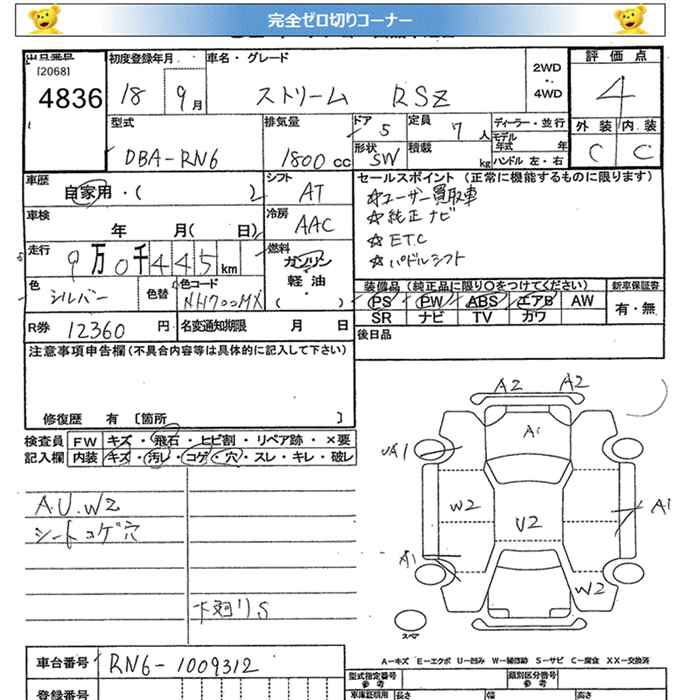 完全ゼロ切りコーナー
出品番号 初度登録年月 車名・グレード 2WD ・ 4WD 評価点
[2068]
4836 18 9月 ストリーム RSZ 4
型式 排気量 ドア 定員 ディーラー・並行 外装 内装
DBA-RN6 1800cc 5 7人 モデル年式 年 C C
形状 積載 kg ハンドル 左・右
SW
車歴 シフト セールスポイント (正常に機能するものに限ります)
自家用・( ) AT ☆ユーザー買取車
車検 冷房 ☆純正ナビ
年 月( 日) AAC ☆ETC
走行 燃料 ☆パドルシフト
9万0千445km ガソリン
軽油・
( )
色 色替 色コード 装備品(純正品に限り○をつけてください) 新車保証書
シルバー NH700MX PS PW ABS エアB AW 有・無
SR ナビ TV カワ
R券 12360円 名変通知期限 月 日 後日品
注意事項申告欄(不具合内容等は具体的に記入して下さい)
修復歴 有 [箇所 ]
検査員 FW キズ・飛石・ヒビ割・リペア跡・×要
記入欄 内装 キズ・汚レ・コゲ・穴・スレ・キレ・破レ
A.U.W2
シートコゲ穴
下廻りS
A2 A2
A1
UA1
W2
U2
A1
A1
W2
スペア
A-キズ E-エクボ U-凹み W-補修跡 S-サビ C-腐食 XX-交換済
車台番号 RN6-1009312
型式指定番号 参考 類別区分番号 参考
登録番号 車庫証明用 長さ 幅 高さ